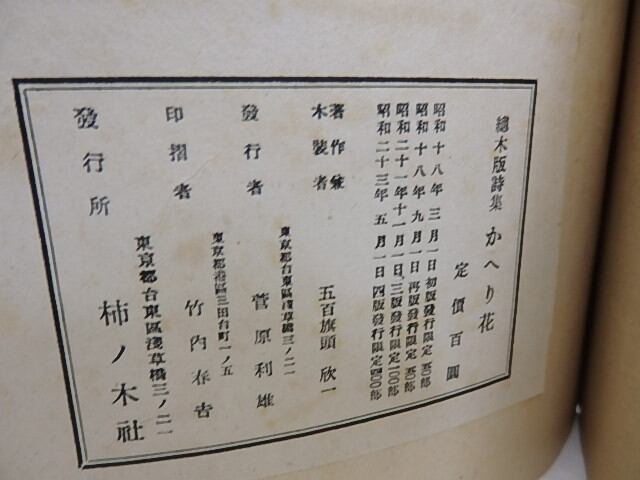 總木版詩集 かへり花
定價百圓
昭和十八年三月一日初版發行限定五〇部
昭和十八年九月一日再版發行限定五〇部
昭和二十一年十一月一日三版發行限定一〇〇部
昭和二十三年五月一日四版發行限定四〇〇部
著作兼
木裝者 五百旗頭欣一
東京都台東區淺草橋三ノ二一
發行者 菅原利雄
東京都港區三田台町一ノ五
印摺者 竹內春吉
東京都台東區淺草橋三ノ二一
發行所 柿ノ木社